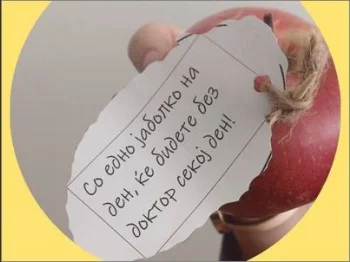 Со едно јаболко на
ден, ќе бидете без
доктор секој ден!